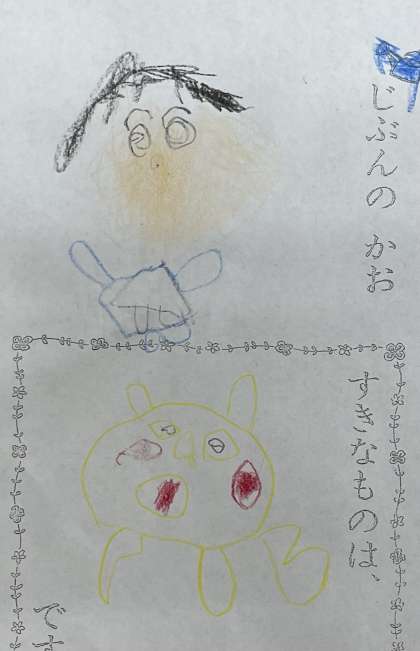 じぶんの かお
すきなものは、